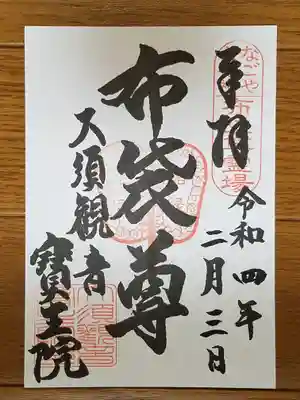 奉拝
令和四年
二月三日
布袋尊
大須観音
寳生院
なごや
霊場